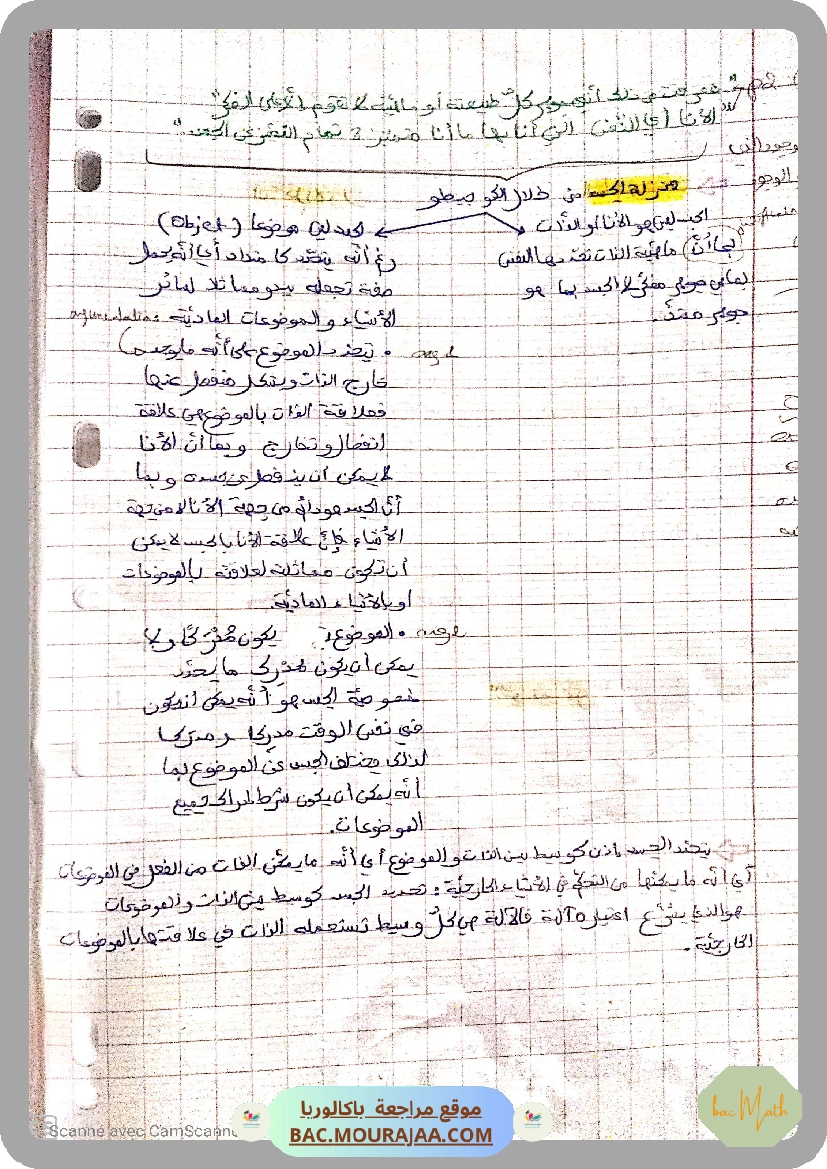 "فعرفت من ذلك أنني جوهر كل طبيعته أو ماهيته لا تقوم إلا على الفكر"
"الأنا أي النفس التي أنا بها ما أنا متميزة تمام التميز عن الجسد"
وجود الذات
الوجود
منزلة الجسد من خلال الكوجيطو
الجسد ليس هو الأنا أو الذات
(بما أن) ماهية الذات تحددها النفس
بما هي جوهر مفكر لا الجسد بما هو
جوهر ممتد.
الجسد ليس موضوعا (Objet)
رغم أنه يتحدد كامتداد أي أنه يحمل
صفة تجعله يبدو مماثلا لسائر
الأشياء والموضوعات المادية argumentation
arg 1 • يتحدد الموضوع على أنه ما يوجد
خارج الذات وبشكل منفصل عنها
فعلاقة الذات بالموضوع هي علاقة
انفصال وتخارج وبما أن الأنا
لا يمكن أن ينفصل عن جسده وبما
أن الجسد هو دائما من جهة الأنا لا من جهة
الأشياء فإن علاقة الأنا بالجسد لا يمكن
أن تكون مماثلة لعلاقته بالموضوعات
أو بالأشياء المادية.
arg 2 • الموضوع يكون مُدْرَكًا ولا
يمكن أن يكون مُدرِكا ما يحدد
خصوصية الجسد هو أنه يمكن أن يكون
في نفس الوقت مدرِكا ومدرَكا
لذلك يختلف الجسد عن الموضوع بما
أنه يمكن أن يكون شرط إدراك جميع
الموضوعات.
يتحدد الجسد إذن كوسيط بين الذات والموضوع أي أنه ما يمكّن الذات من الفعل في الموضوعات
أي أنه ما يمكنها من التحكم في الأشياء الخارجية: تحديد الجسد كوسيط بين الذات والموضوعات
هو الذي يشرّع اعتباره آلة فالآلة هي كل وسيط تستعمله الذات في علاقتها بالموضوعات
الخارجية.
Scanné avec CamScanne
موقع مراجعة باكالوريا
BAC.MOURAJAA.COM
bac Math